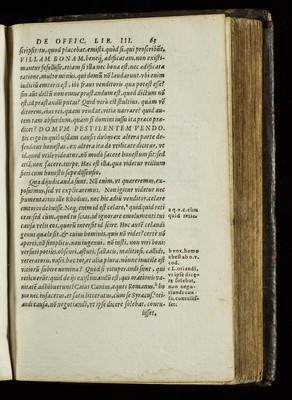 DE OFFIC. LIB. III. 65
scripserūt, quod placebat, emisti. quòd si, qui proscribūt,
VILLAM BONAM, beneq́; ædificatam, non existi-
mantur fefellisse, etiam si illa nec bona est, nec ædificata
ratione, multo minus, qui domū nō laudarunt. vbi enim
iudiciū emtoris est, ibi fraus venditoris quæ potest esse?
sin aūt dictū non omne præstandum est, quod dictum nō
est, id præstandū putas? Quid verò est stultius, quàm vē
ditorem, eius rei, quam vendat, vitia narrare? quid au-
tem tam absurdum, quàm si domini iussu ita præco præ-
dicet? DOMVM PESTILENTEM VENDO.
Sic ergo in quibusdam causis dubijs ex altera parte de-
fenditur honestas: ex altera ita de vtilitate dicitur, vt
id, quod vtile videatur, nō modò facere honestum sit: sed
etiā, non facere, turpe. Hæc est illa, quæ videtur vtilium
fieri cum honestis sæpe dissensio.
Quæ dijudicanda sunt. Nō enim, vt quæreremus, ex-
posuimus, sed vt explicaremus. Non igitur videtur nec
frumentarius ille Rhodius, nec hic ædiū venditor, celare
emtores debuisse. Neq́; enim id est celare, quidquid reti
ceas: sed cùm, quod tu scias, id ignorare emolumenti tui
causa velis eos, quorū intersit id scire. Hoc autē celandi
genus quale sit, & cuius hominis, quis nō videt? certè nō
aperti, nō simplicis, non ingenui. nō iusti, non viri boni:
versuti potius, obscuri, astuti, fallacis, malitiosi, callidi,
veteratoris, vafri. hæc tot, et alia plura, nónne inutile est
vitiorū subire nomina? Quòd si vituperandi sunt, qui
reticuerūt: quid de ijs existimandū est, qui orationis va-
nitatē adhibuerunt? Caius Canius, eques Romanus, ho
mo nec infacetus, et satis litteratus, cùm se Syracus. oti-
andi causa, nō negotiandi, vt ipse dicere solebat, contu-
lisset,